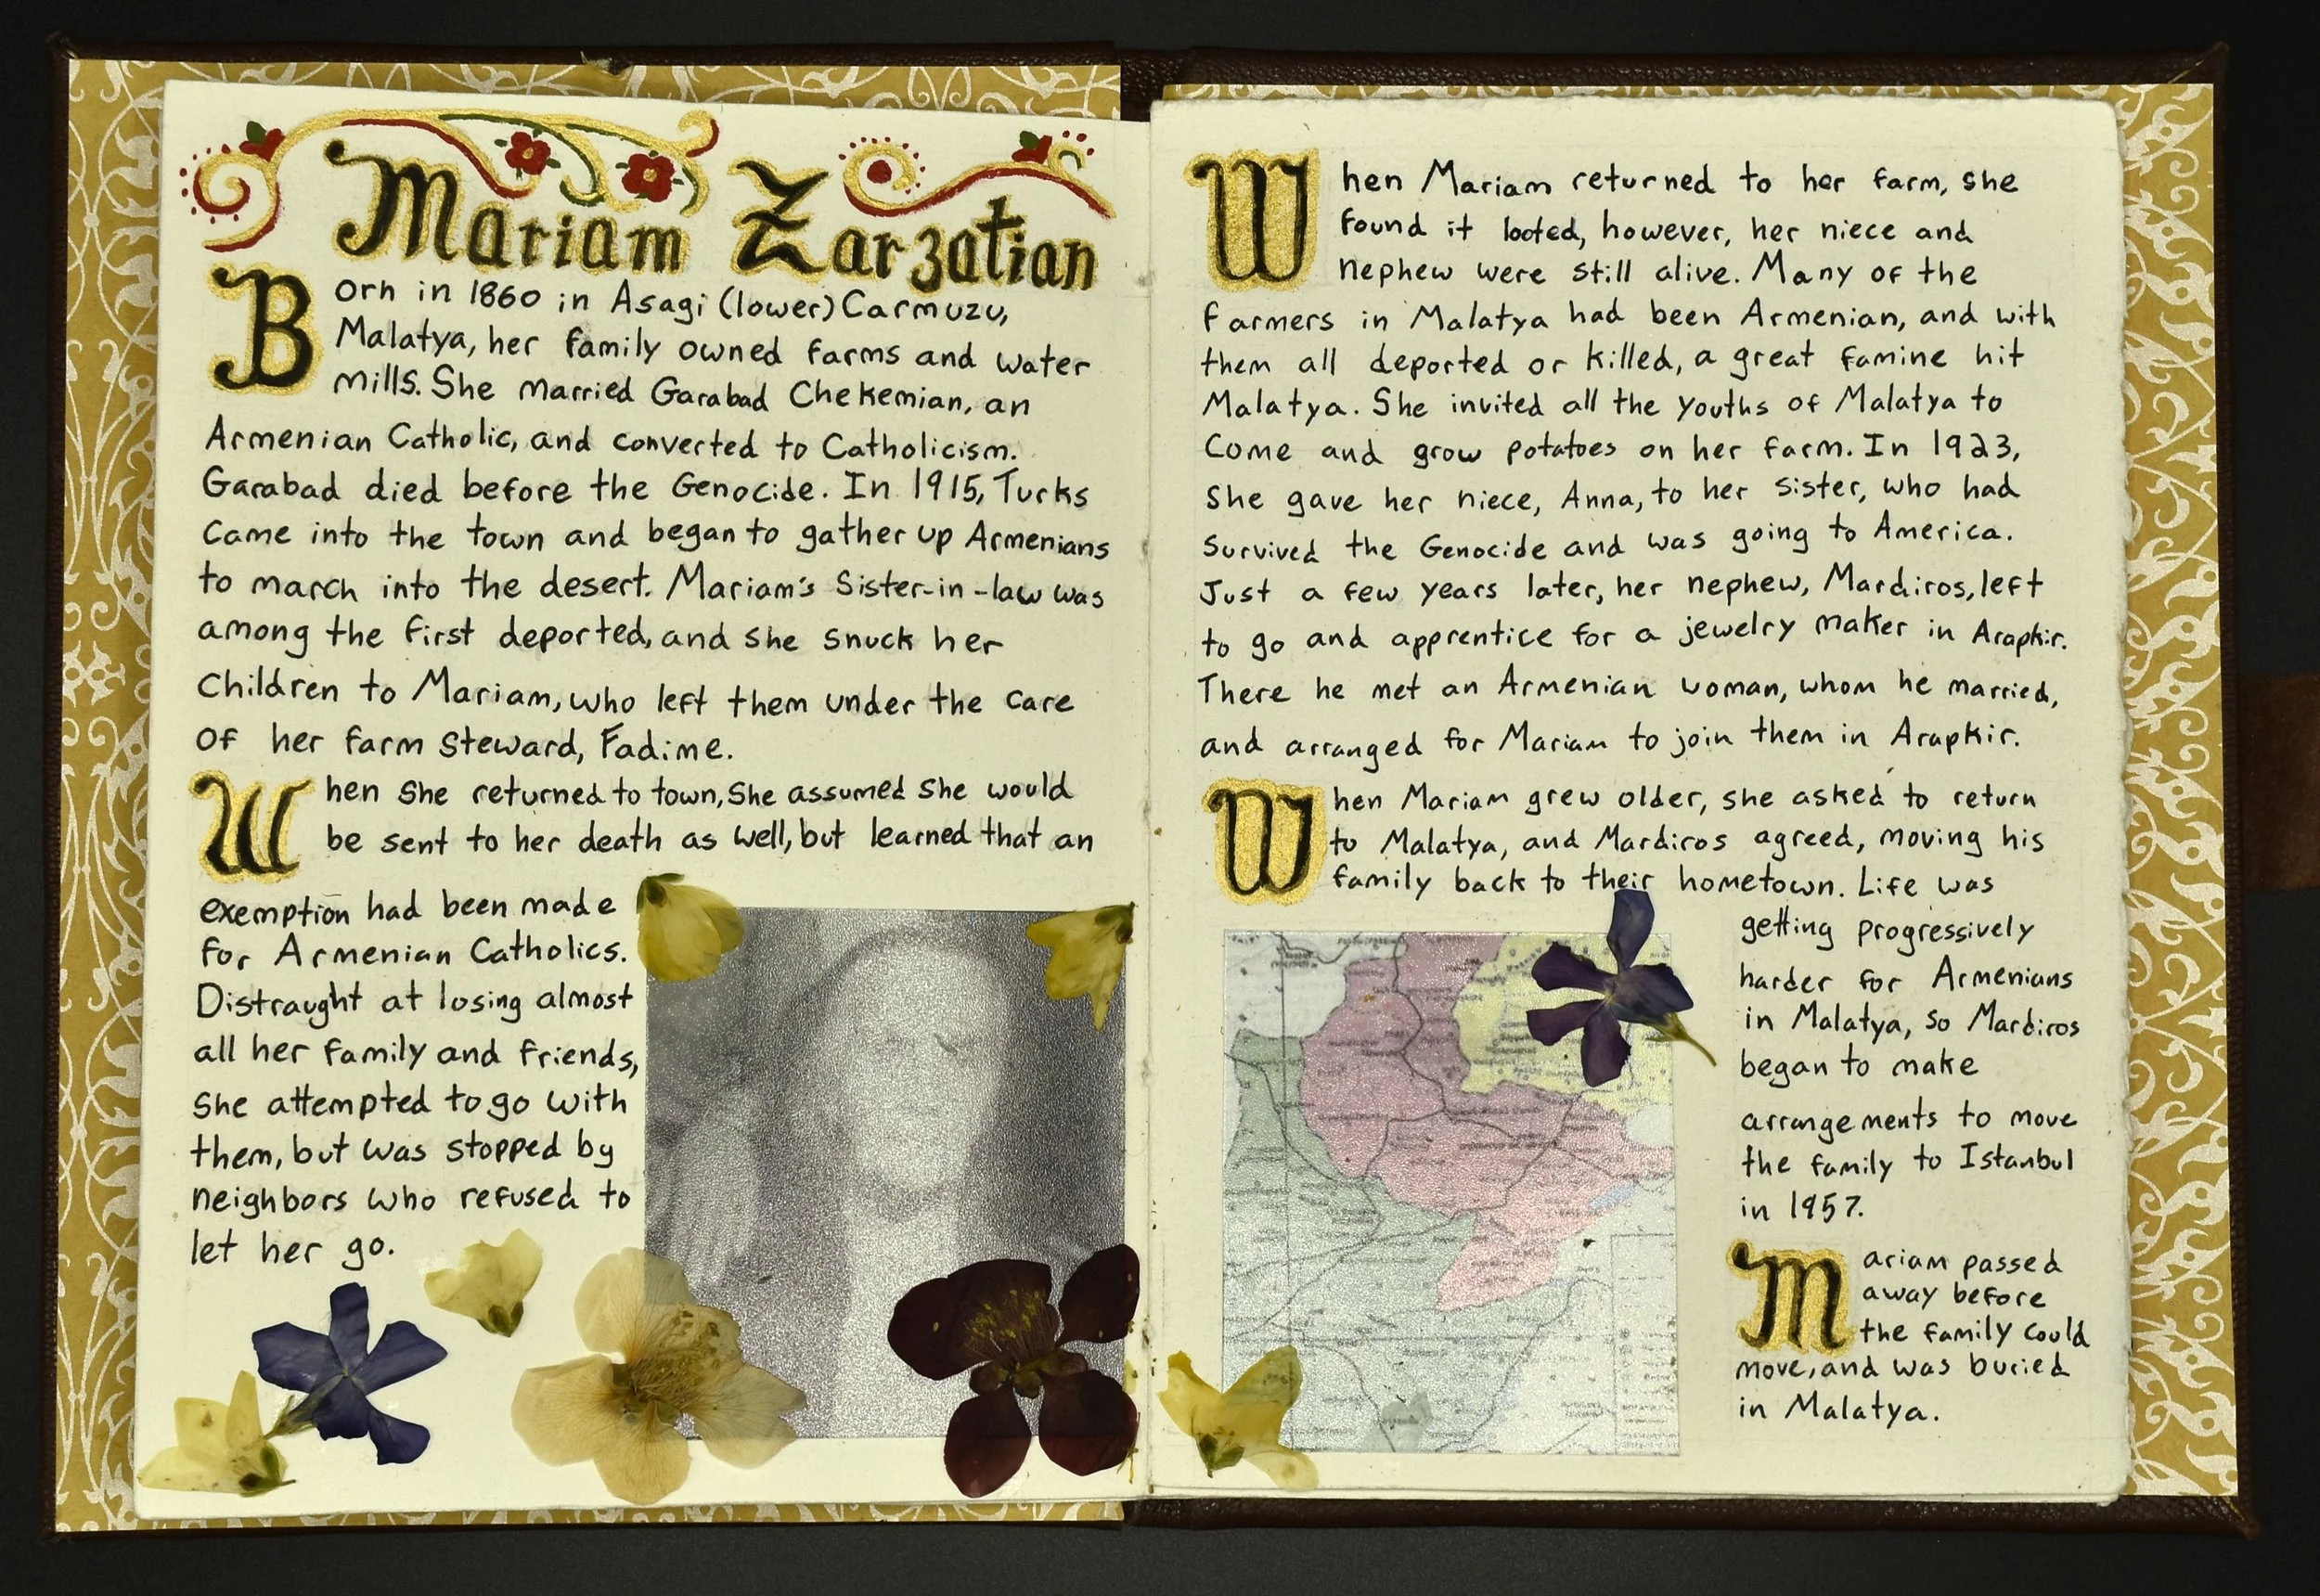 Mariam Zarzatian
Born in 1860 in Asagi (lower) Carmuzu,
Malatya, her family owned farms and water
mills. She married Garabad Chekemian, an
Armenian Catholic, and converted to Catholicism.
Garabad died before the Genocide. In 1915, Turks
came into the town and began to gather up Armenians
to march into the desert. Mariam's Sister-in-law was
among the first deported, and she snuck her
children to Mariam, who left them under the care
of her farm steward, Fadime.
When she returned to town, she assumed she would
be sent to her death as well, but learned that an
exemption had been made
for Armenian Catholics.
Distraught at losing almost
all her family and friends,
she attempted to go with
them, but was stopped by
neighbors who refused to
let her go.
When Mariam returned to her farm, she
found it looted, however, her niece and
nephew were still alive. Many of the
farmers in Malatya had been Armenian, and with
them all deported or killed, a great famine hit
Malatya. She invited all the youths of Malatya to
come and grow potatoes on her farm. In 1923,
she gave her niece, Anna, to her sister, who had
survived the Genocide and was going to America.
Just a few years later, her nephew, Mardiros, left
to go and apprentice for a jewelry maker in Arapkir.
There he met an Armenian woman, whom he married,
and arranged for Mariam to join them in Arapkir.
When Mariam grew older, she asked to return
to Malatya, and Mardiros agreed, moving his
family back to their hometown. Life was
getting progressively
harder for Armenians
in Malatya, so Mardiros
began to make
arrangements to move
the family to Istanbul
in 1957.
Mariam passed
away before
the family could
move, and was buried
in Malatya.